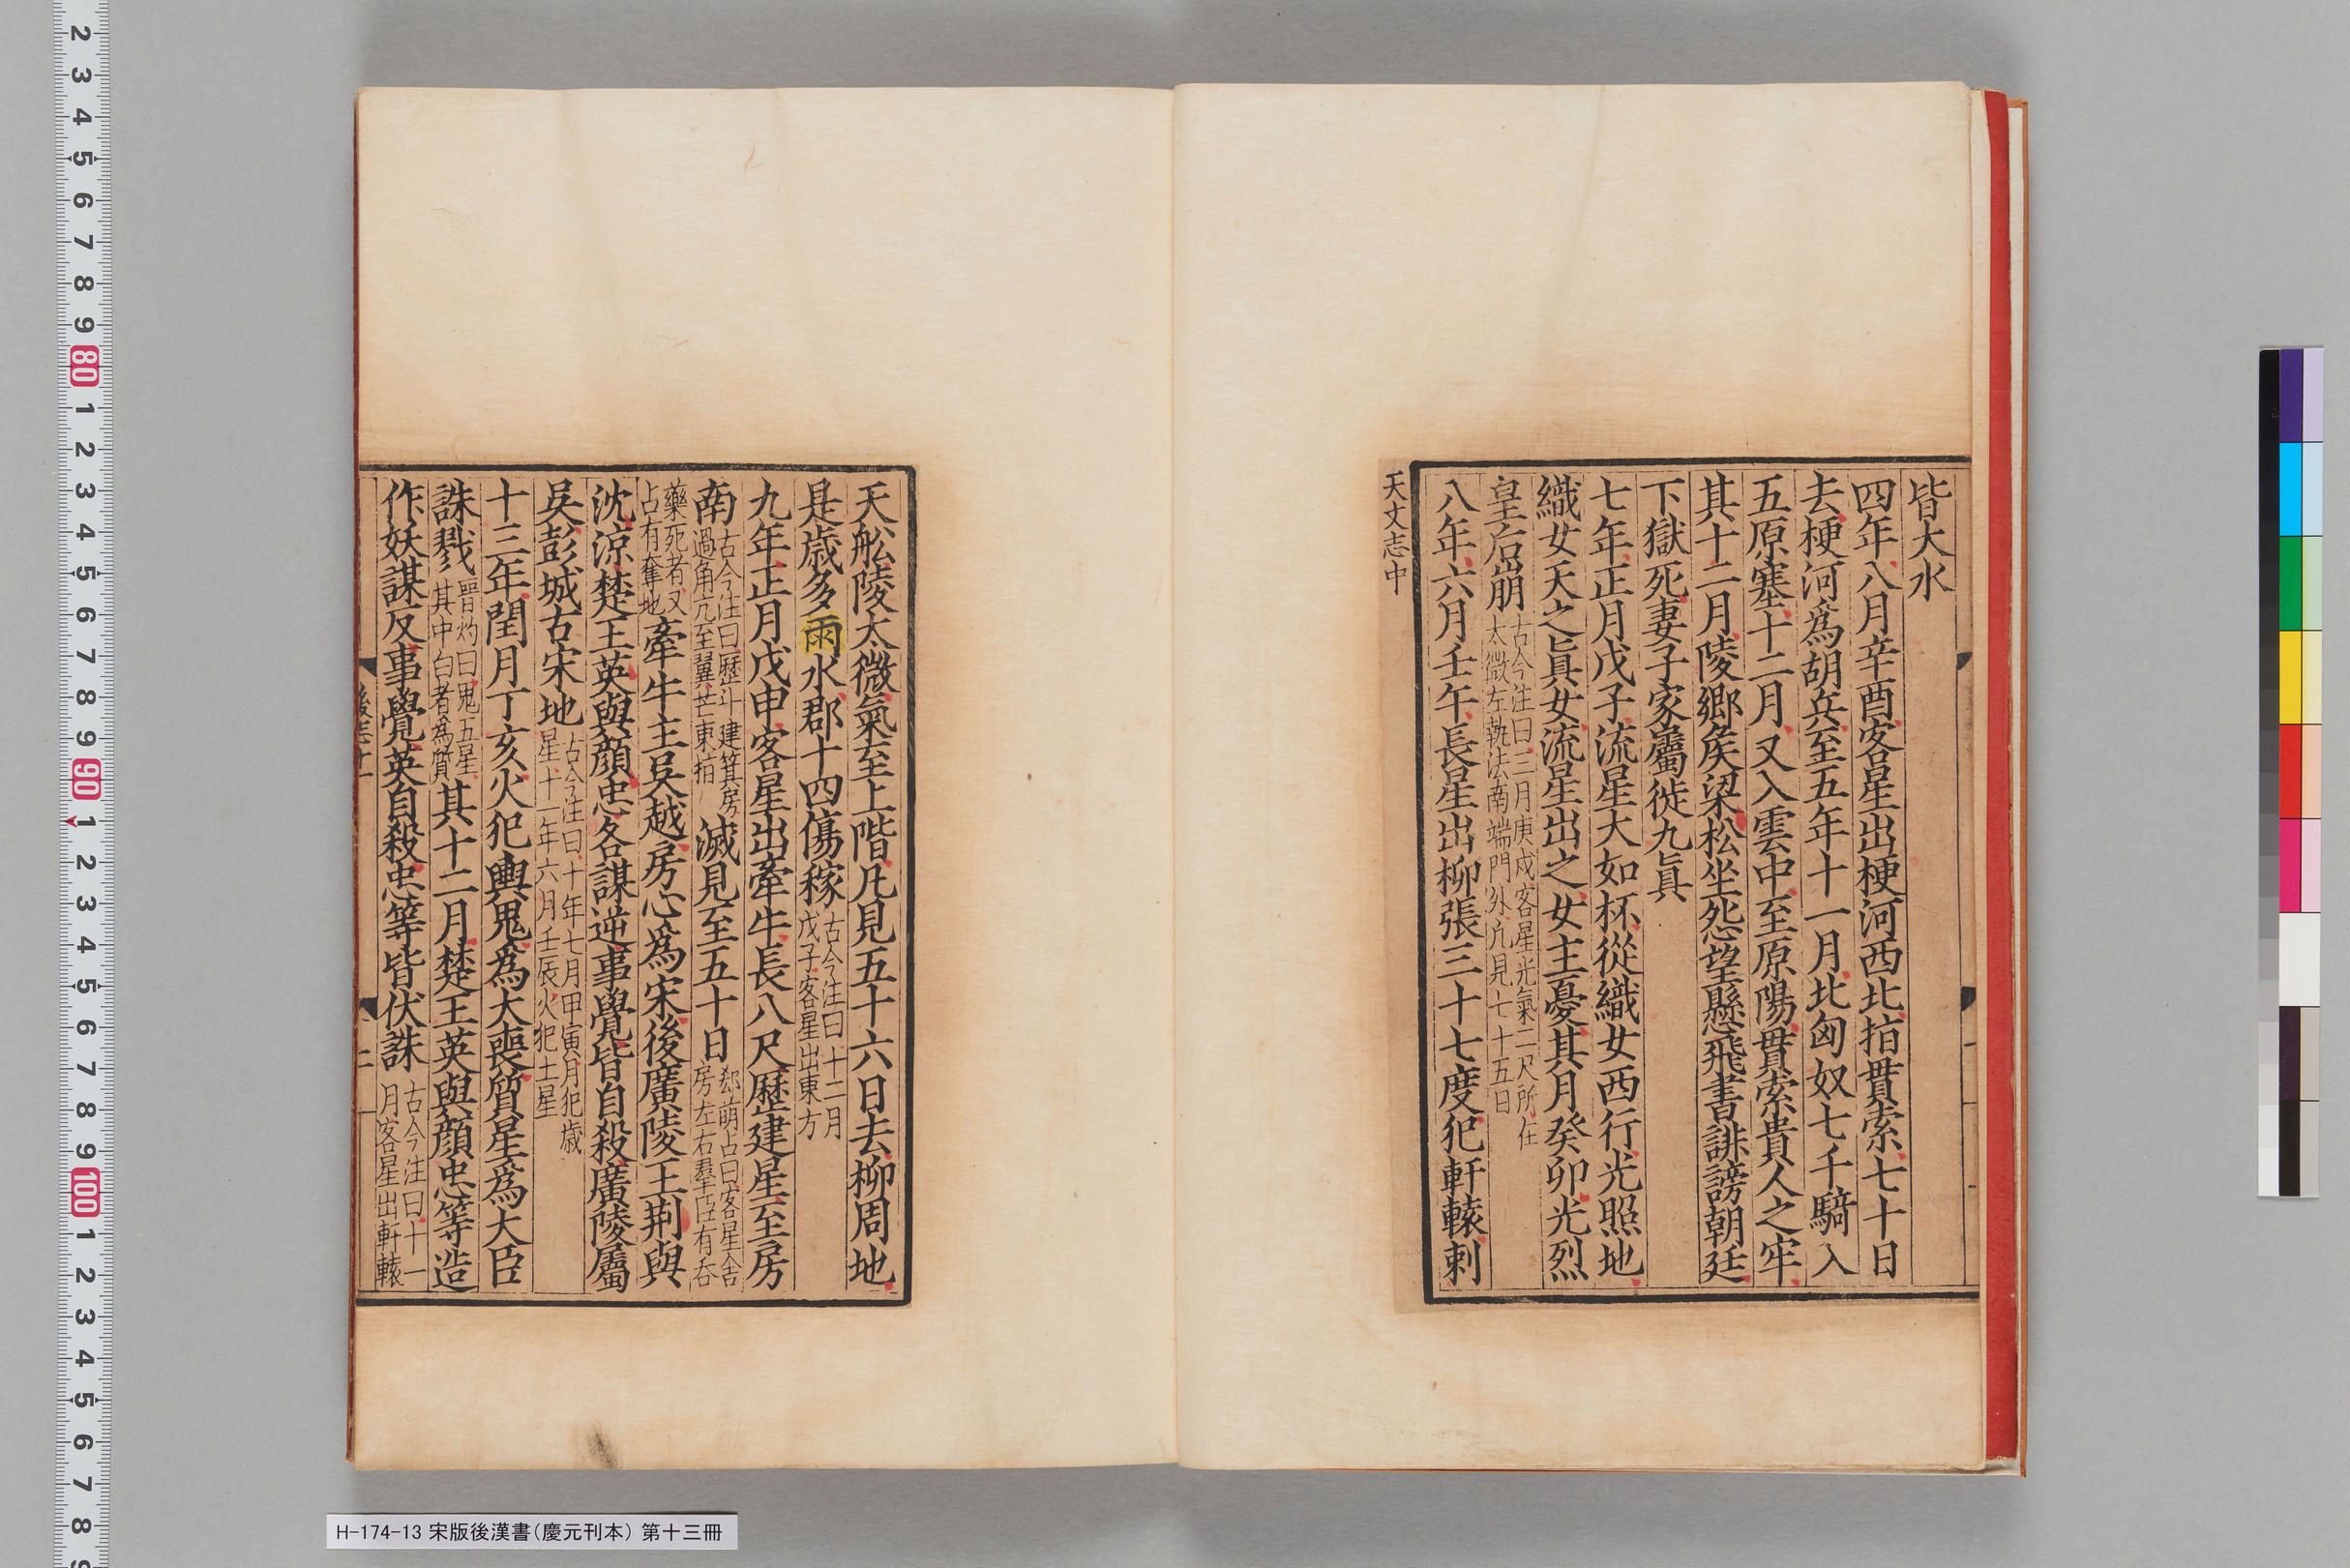 皆大水
四年八月辛酉客星出梗河西北指貫索七十日
去梗河爲胡兵至五年十一月北匈奴七千騎入
五原塞十二月又入雲中至原陽貫索貴人之牢
其十二月陵鄉矦梁松坐怨望懸飛書誹謗朝廷
下獄死妻子家屬徙九眞
七年正月戊子流星大如杯從織女西行光照地
織女天之眞女流星出之女主憂其月癸卯光烈
皇后崩古今注曰三月庚戌客星光氣二尺所在太微左執法南端門外凡見七十五日
八年六月壬午長星出柳張三十七度犯軒轅刺
天文志中
天船陵太微氣至上階凡見五十六日去柳周地
是歲多雨水郡十四傷稼古今注曰十二月戊子客星出東方
九年正月戊申客星出牽牛長八尺歷建星至房
南古今注曰歷斗建箕房過角亢至翼芒東指滅見至五十日郄萌占曰客星舍房左右羣臣有吞
藥死者又占有奪地牽牛主吳越房心爲宋後廣陵王荆與
沈涼楚王英與顔忠各謀逆事覺皆自殺廣陵屬
吳彭城古宋地古今注曰十年七月甲寅月犯歲星十一年六月壬辰火犯土星
十三年閏月丁亥火犯輿鬼爲大喪質星爲大臣
誅戮晉灼曰鬼五星其中白者爲質其十二月楚王英與顔忠等造
作妖謀反事覺英自殺忠等皆伏誅古今注曰十一月客星出軒轅
後志十一
二
2 3 4 5 6 7 8 9 80 1 2 3 4 5 6 7 8 9 90 1 2 3 4 5 6 7 8 9 100 1 2 3 4 5 6 7 8 9
H-174-13 宋版後漢書（慶元刊本） 第十三冊